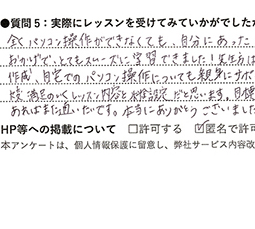 ●質問5:実際にレッスンを受けてみていかがでした
全くパソコン操作ができなくても、自分にあった
おかげで、とてもスムーズに学習できました!先生方は
作成、自宅でのパソコン操作についても親身にサポ
満足のいくレッスン内容と 設定だと思います。目標
あればまた通いたいです。本当にありがとうございました
HP等への掲載について □許可する ☑匿名で許可
本アンケートは、個人情報保護に留意し、弊社サービス内容改